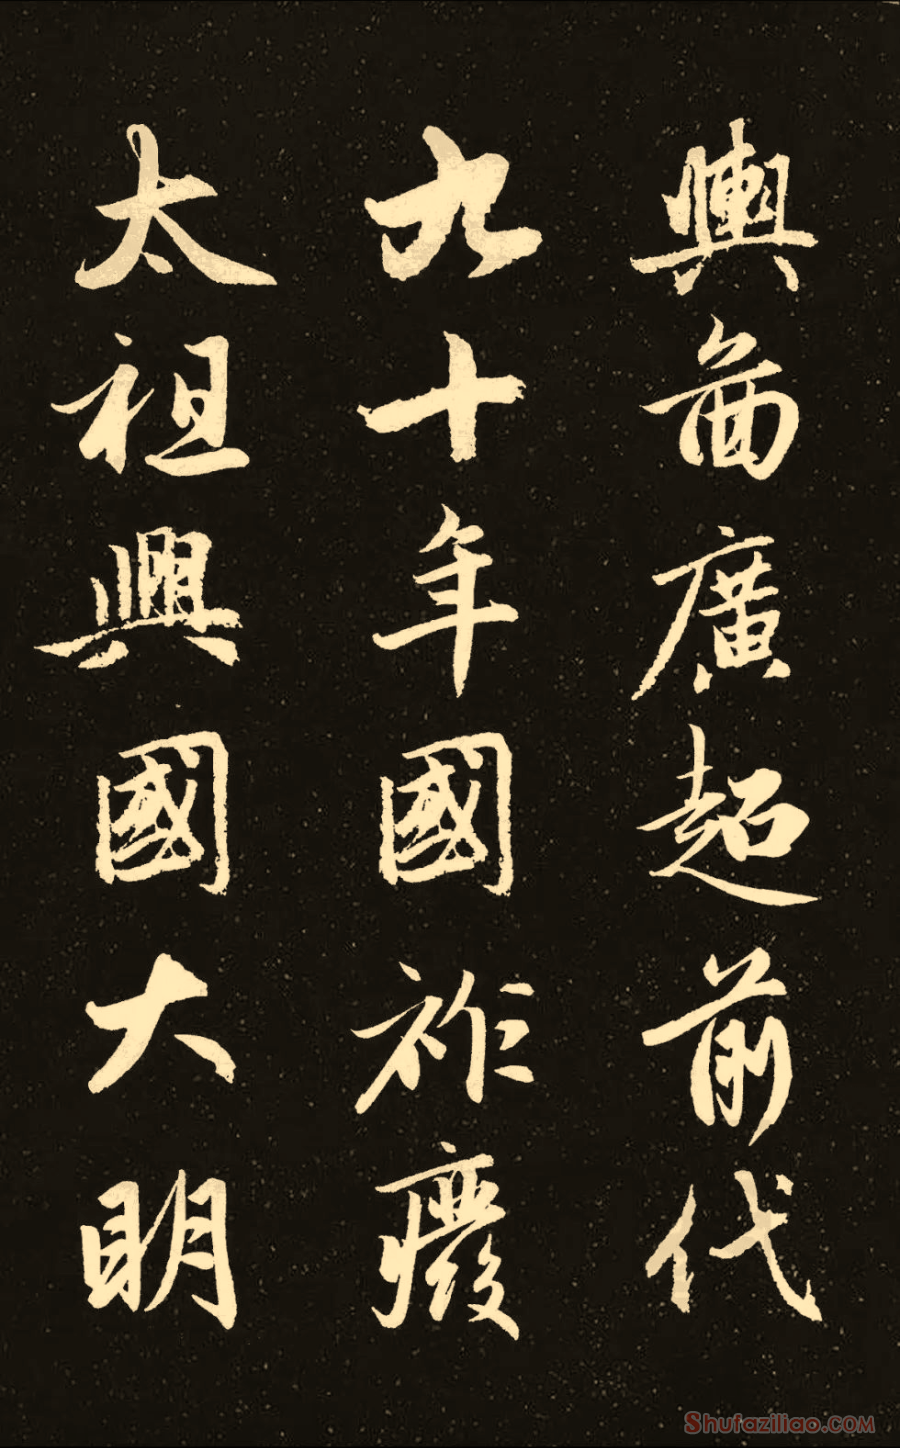 輿啚廣超前代
九十年國祚廢
太祖興國大明
Shufaziliao.com